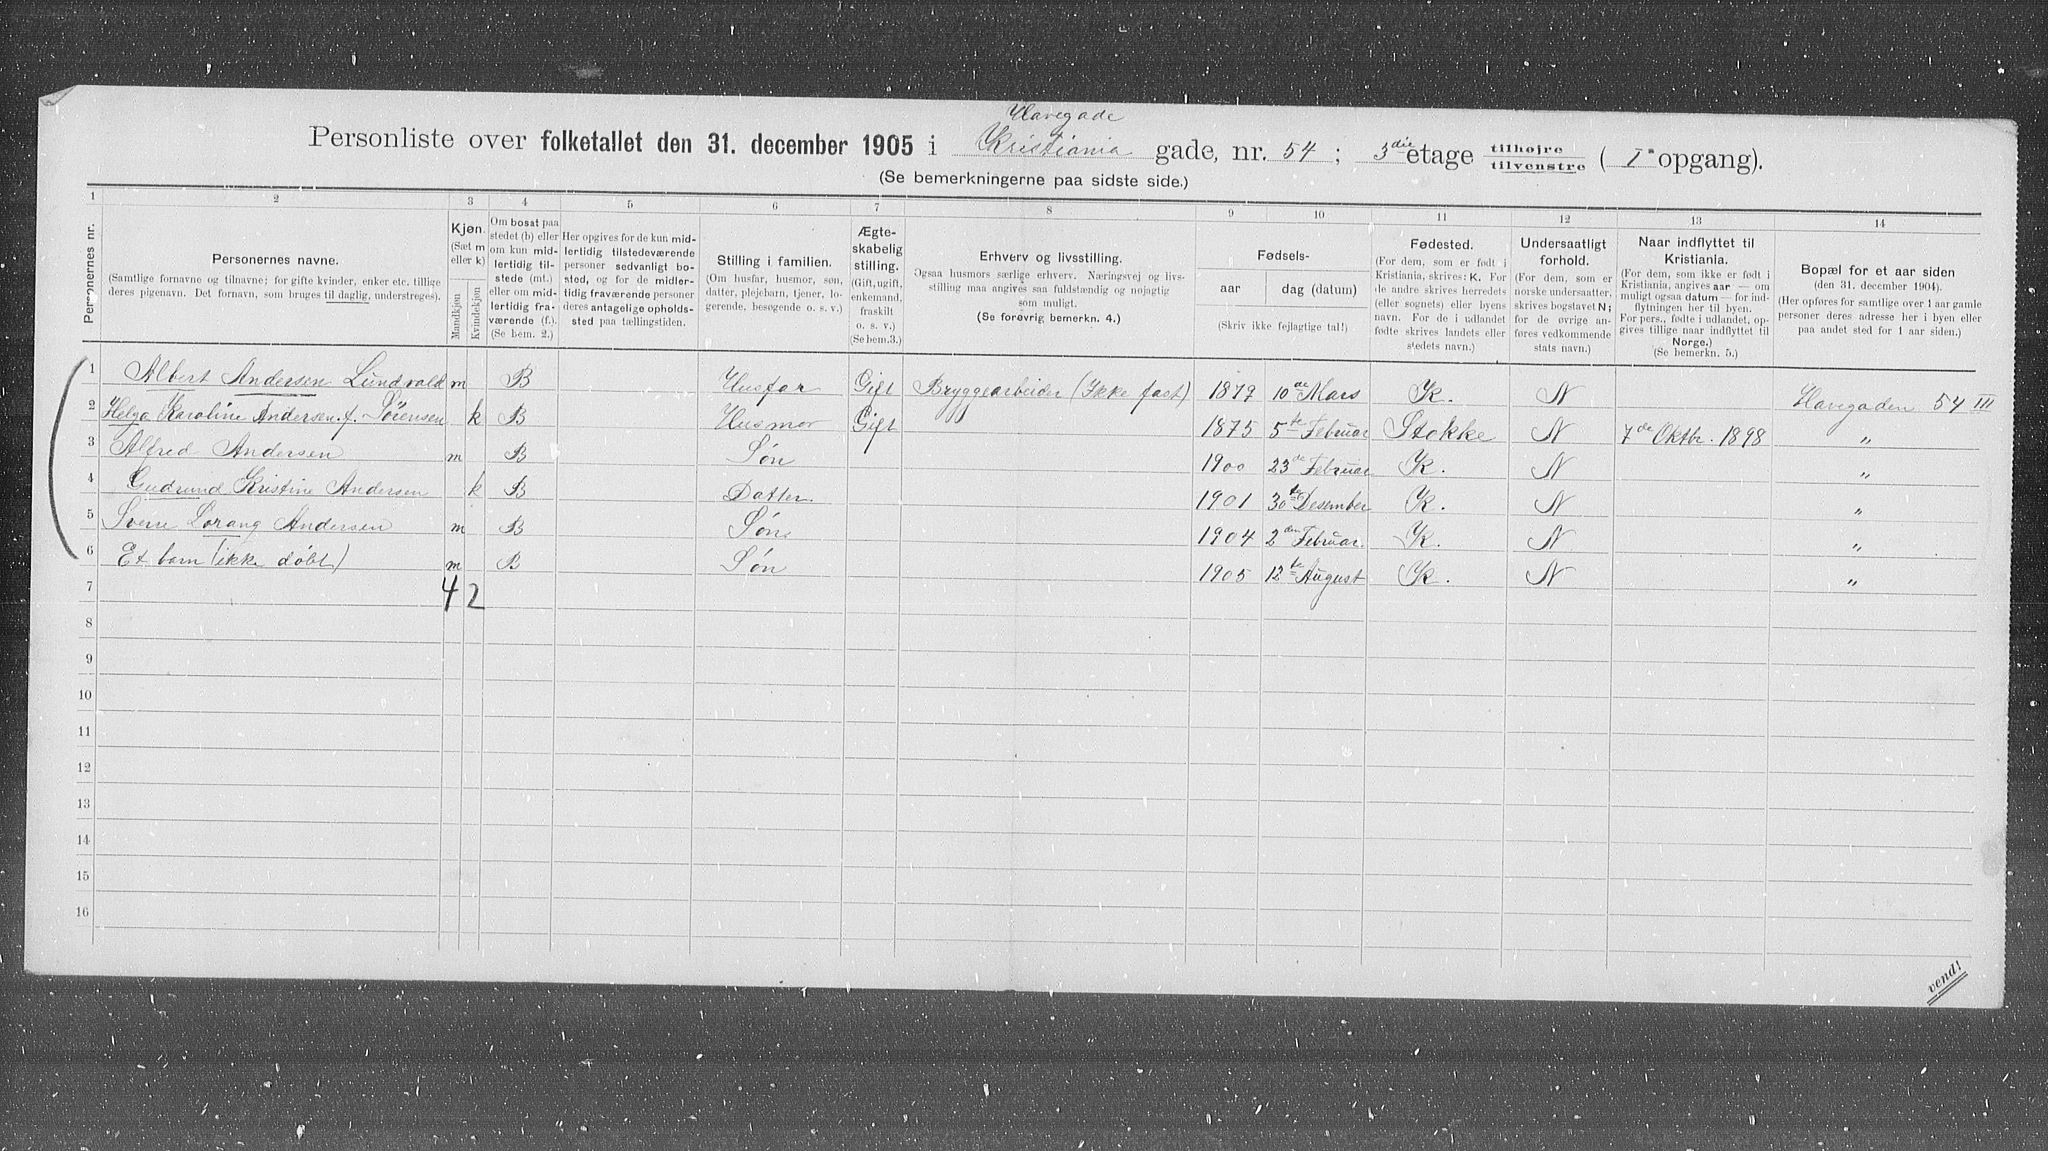 Havegade
Personliste over folketallet den 31. december 1905 i Kristiania gade, nr. 54 ; 3die etage tilhøjre tilvenstre ( I opgang).
(Se bemerkningerne paa sidste side.)
1 2 3 4 5 6 7 8 9 10 11 12 13 14
Personernes nr.
Personernes navne.
(Samtlige fornavne og tilnavne; for gifte kvinder, enker etc. tillige
deres pigenavn. Det fornavn, som bruges til daglig, understreges).
Kjøn.
(Sæt m
eller k)
Mandkjøn
Kvindekjøn
Om bosat paa
stedet (b) eller
om kun mid-
lertidig til-
stede (mt.)
eller om mid-
lertidig fra-
værende (f.).
(Se bem. 2.)
Her opgives for de kun mid-
lertidig tilstedeværende
personer sedvanligt bo-
sted, og for de midler-
tidig fraværende personer
deres antagelige opholds-
sted paa tællingstiden.
Stilling i familien.
(Om husfar, husmor, søn,
datter, plejebarn, tjener, lo-
gerende, besøgende o. s. v.)
Ægte-
skabelig
stilling.
(Gift, ugift,
enkemand,
fraskilt
o. s. v.)
(Se bem.3.)
Erhverv og livsstilling.
Ogsaa husmors særlige erhverv. Næringsvej og livs-
stilling maa angives saa fuldstændig og nøjagtig
som muligt.
(Se forøvrig bemerkn. 4.)
Fødsels-
aar
dag (datum)
(Skriv ikke fejlagtige tal!)
Fødested.
(For dem, som er født i
Kristiania, skrives: K. For
de andre skrives herredets
(eller sognets) eller byens
navn. For de i udlandet
fødte skrives landets eller
stedets navn.)
Undersaatligt
forhold.
(For dem, som er
norske undersaatter,
skrives bogstavet N;
for de øvrige an-
føres vedkommende
stats navn.)
Naar indflyttet til
Kristiania.
(For dem, som ikke er født i
Kristiania, angives aar — om
muligt ogsaa datum — for ind-
flytningen her til byen.
For pers., fødte i udlandet, op-
gives tillige naar indflyttet til
Norge.)
(Se bemerkn. 5.)
Bopæl for et aar siden
(den 31. december 1904).
(Her opføres for samtlige over 1 aar gamle
personer deres adresse her i byen eller
paa andet sted for 1 aar siden.)
1 Albert Andersen Lundvald m B Husfar Gift Bryggearbeider (Ikke fast) 1879 10de Mars K. N Havegaden 54 III
2 Helga Karoline Andersen f. Sörensen k B Husmor Gift 1875 5te Februar Stokke N 7de Oktbr. 1898 "
3 Alfred Andersen m B Søn 1900 23de Februar K. N "
4 Gudrund Kristine Andersen k B Datter 1901 30te Desember K. N "
5 Sverre Lorang Andersen m B Søn 1904 2den Februar. K. N "
6 Et barn (ikke døbt) m B Søn 1905 12te August K. N "
7 4 2
8
9
10
11
12
13
14
15
16
vend!